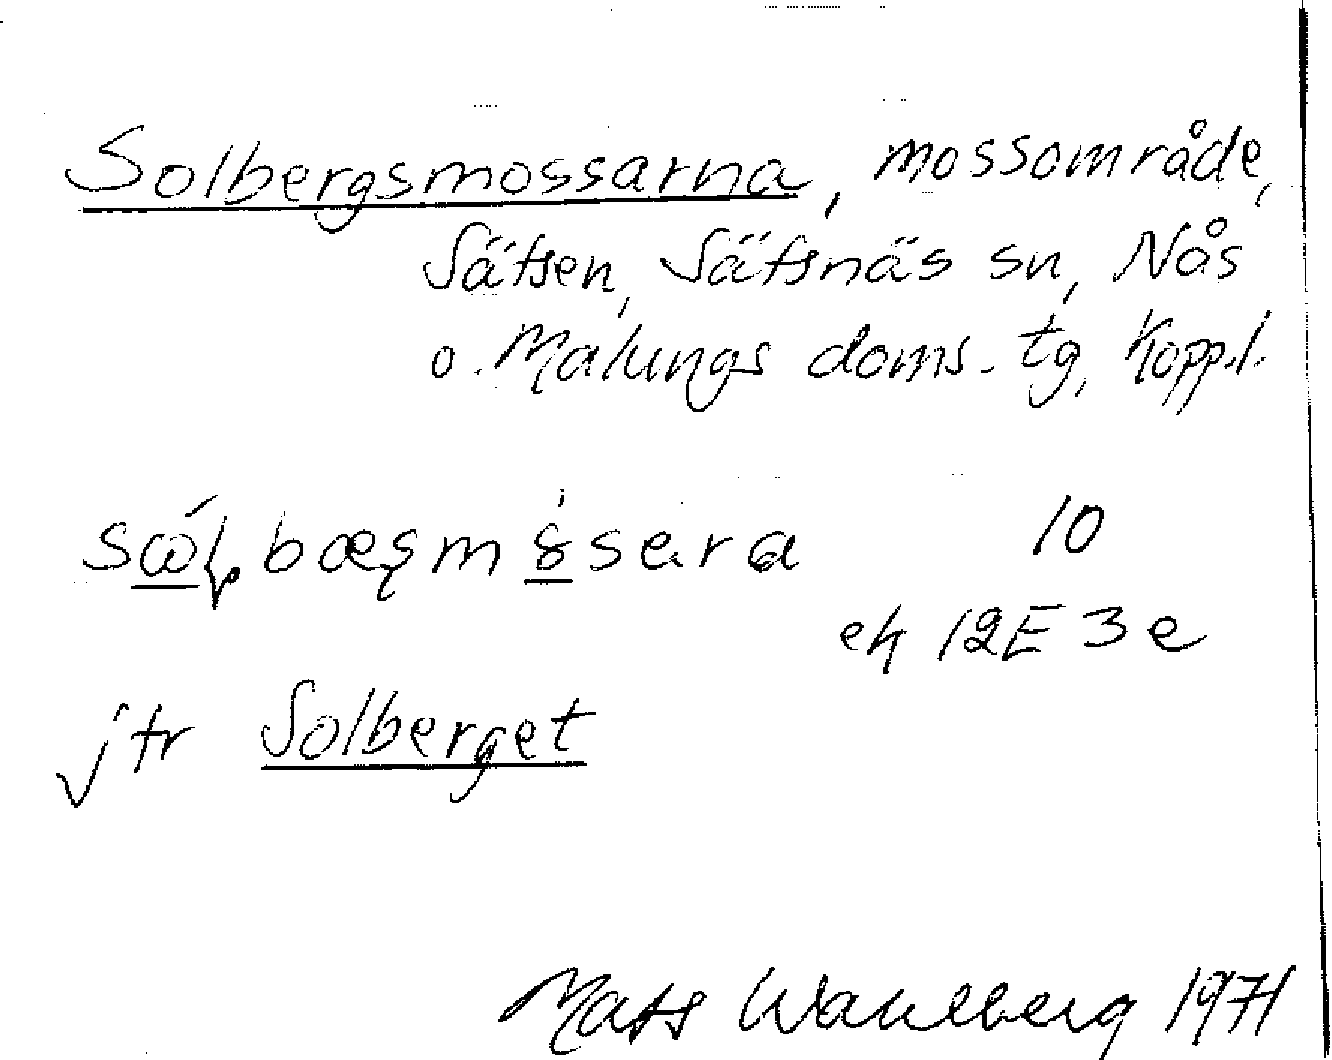 Solbergsmossarna, mossområde,
Sätsen, Sätsnäs sn, Nås
o. Malungs doms. tg, Kopp.l.
10
ek 12E 3e
jfr Solberget
Mats Wahlberg 1971